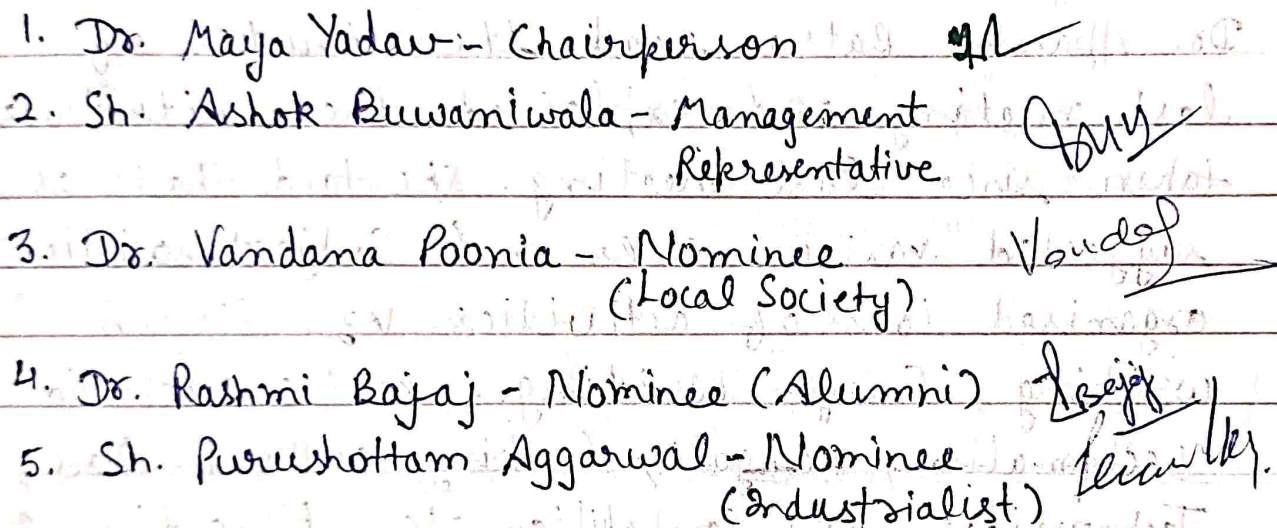 1. Dr. Maya Yadav - Chairperson
2. Sh. Ashok Buwaniwala - Management
Representative
3. Dr. Vandana Poonia - Nominee
(Local Society)
4. Dr. Rashmi Bajaj - Nominee (Alumni)
5. Sh. Purushottam Aggarwal - Nominee
(Industrialist)